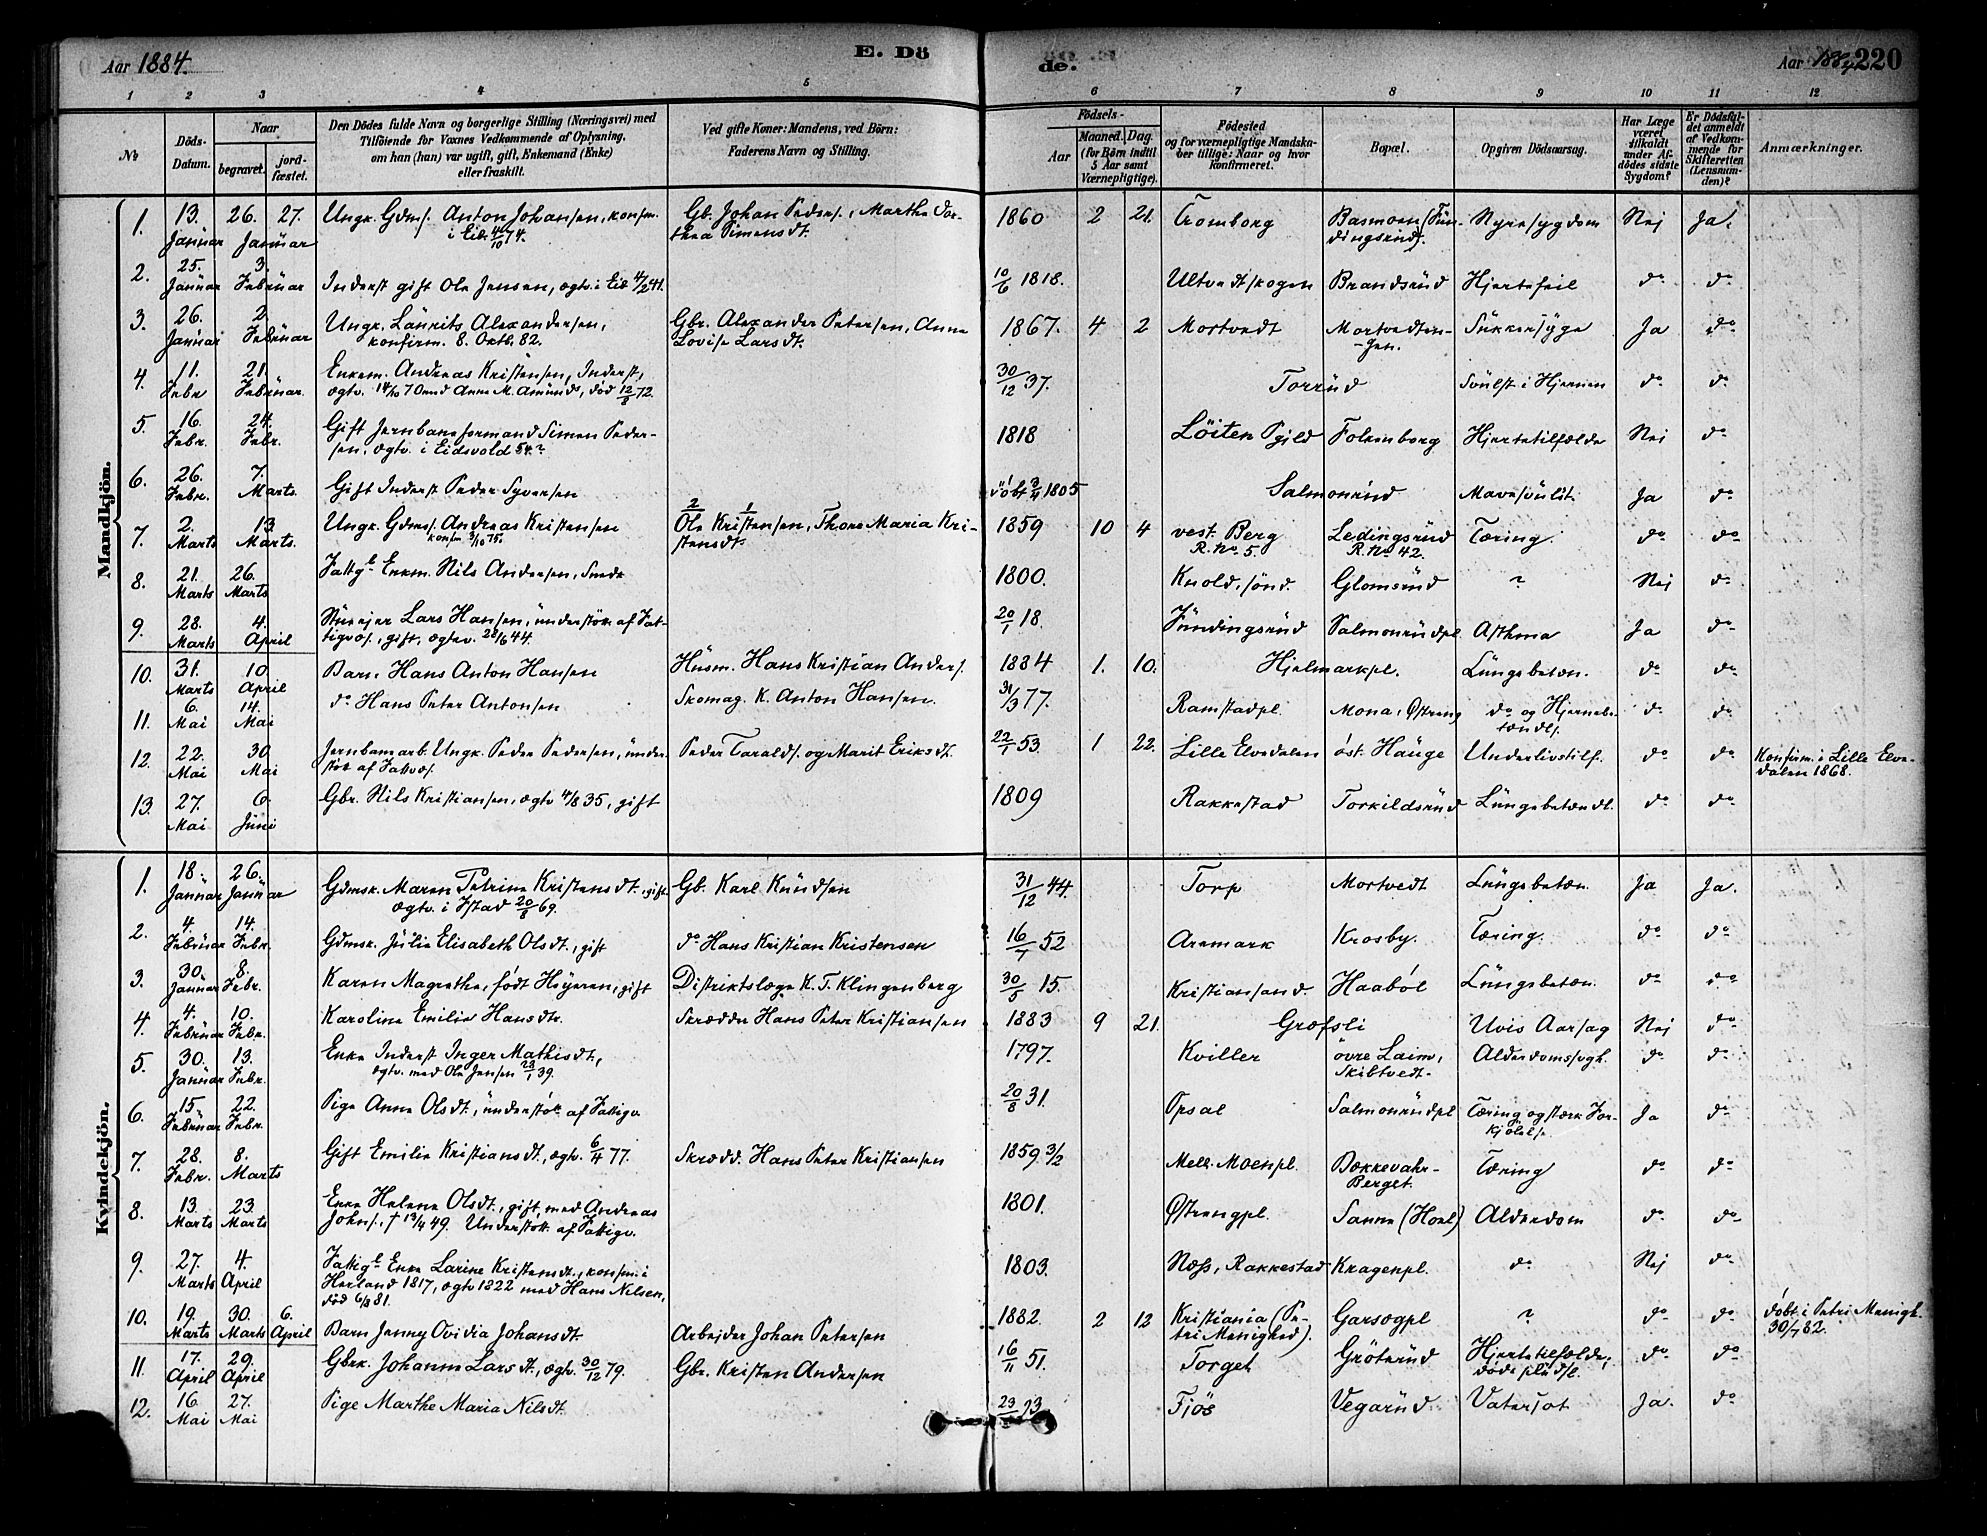 Aar 1884.
E. Dö
de.
Aar 1884
220
1 2 3 4 5 6 7 8 9 10 11 12
No
Döds-
Datum.
Naar
begravet.
jord-
fæstet.
Den Dödes fulde Navn og borgerlige Stilling (Næringsvei) med
Tilföiende for Voxnes Vedkommende af Oplysning,
om han (hun) var ugift, gift, Enkemand (Enke)
eller fraskilt.
Ved gifte Koner: Mandens, ved Börn:
Faderens Navn og Stilling.
Födsels-
Aar
Maaned. Dag.
(for Börn indtil
5 Aar samt
Værnepligtige).
Födested
og for værnepligtige Mandska-
ber tillige: Naar og hvor
konfirmeret.
Bopæl.
Opgiven Dödsaarsag.
Har Læge
været
tilkaldt
under Af-
dödes sidste
Sygdom?
Er Dödsfal-
det anmeldt
af Vedkom-
mende for
Skifteretten
(Lensman-
den)?
Anmærkninger.
Mandkjön.
1. 13. Januar 26. Januar 27. Ungk. Gdms. Anton Johansen, konfm. i Eid. 4/10 74. Gb. Johan Peders., Marthe Dor-
thea Simensdt. 1860 2 21. Tromborg Basmoen (Fun-
dingsrud). Nyresygdom Nej Ja.
2. 25. Januar 3. Februar Inderst gift Ole Jensen, egtv. i Eid 4/2 41. 10/6 1818. Ultvedtskogen Brandsrud Hjertefeil do do
3. 26. Januar 2. Februar Ungk. Laurits Alexandersen,
konfirm. 8. Oktb. 82. Gbr. Alexander Petersen, Anne
Lovise Larsdt. 1867. 4 2 Mortvedt Mortvedten-
gen. Sukkersyge Ja do
4. 11. Febr 21. Februar. Enkem. Andreas Kristensen, Inderst,
egtv. 14/10 70 med Anne M. Amunds, död 12/8 72. 30/12 37. Torrud Svulst i Hjernen do do
5. 16. Febr. 24. Febr. Gift Jernbaneformand Simen Peder-
sen, egtv. i Eidsvold 54? 1818 Löiten Pgjld Folkenborg Hjertetilfælde Nej do
6. 26. Febr. 7. Marts. Gift Inderst Peder Syversen döbt 3/4 1805 Salmonrud Mavesvulst. Ja do
7. 2. Marts 13 Marts. Ungk. Gdms. Andreas Kristensen
konfm 3/10 75. Ole Kristensen, Thore Maria Kri-
stensdt. 1859 10 4 vest. Berg
R. No 5. Ledingsrud
R. No 42. Tæring. do do
8. 21. Marts 26. Marts Fattgl Enkm. Nils Andersen, Smed 1800. Knold, sönd. Glomsrud ? Nej do
9. 28. Marts 4. April Stueejer Lars Hansen, understöt. af Fat-
tigvæs., gift, egtv. 28/6 44. 20/1 18. Fundingsrud Salmonrudpl Asthma Ja do
10. 31. Marts 10. April Barn Hans Anton Hansen Husm. Hans Kristian Anders. 1884 1. 10. Hjelmarkpl. Lungebetæn. do do
11. 6. Mai 14. Mai do Hans Peter Antonsen Skomag. K. Anton Hansen. 31/3 77. Ramstadpl. Mona, Østreng do og Hjernebe-
tændls. do do
12. 22. Mai 30. Mai Jernbanearb. Ungk. Peder Pedersen, under-
stöt af Fattvæs. Peder Taralds. og Marit Eriksdt. 22/1 53. 1 22. Lille Elvedalen öst. Hauge Underlivstilf. do do Konfirm. i Lille Elve-
dalen 1868.
13. 27. Mai 6. Juni Gbr. Nils Kristiansen, egtv 4/8 35, gift 1809 Rakkestad Torkildsrud Lungebetændt. do do
Kvindekjön.
1. 18. Januar 26. Januar Gdmsk. Maren Petrine Kristensdt., gift
egtv. i Ystad 20/8 69. Gb. Karl Knudsen 31/12 44. Torp Mortvedt Lungebetæn. Ja Ja.
2. 4. Februar 14. Febr. Gdmsk. Julie Elisabeth Olsdt., gift do Hans Kristian Kristensen 16/1 52 Aremark Krosby. Tæring. do do
3. 30. Januar 8. Febr. Karen Magrethe, födt Höyeren, gift Distriktslæge K. T. Klingenberg 30/5 15. Kristiansand. Haaböl Lungebetæn. do do
4. 4. Februar 10. Febr. Karoline Emilie Hansdtr. Skrædder Hans Peter Kristiansen 1883 9 21. Grofsli Uvis Aarsag Nej do
5. 30. Januar 13. Febr. Enke Inderst Inger Mathisdt.,
egtv. med Ole Jensen 23/1 39. 1797. Kviller övre Laim,
Skibtvedt. Alderdomssvgh. do do
6. 15 Februar 22. Febr. Pige Anne Olsdt., understöt. af Fattigv. 20/8 31. Opsal Salmonrudpl Tæring og stærk For-
kjölelse. Ja do
7. 28. Febr. 8. Marts Gift Emilie Kristiansdt., egtv. 6/4 77. Skrædd. Hans Peter Kristiansen 1859 3/2 Mell. Moenpl. Bækkevahr-
Berget. Tæring do do
8. 13. Marts 23. Marts Enke Helene Olsdt., gift med Andreas
Johns., † 13/4 49. Understött af Fattigv. 1801. Østrengpl. Sanne (Hoel) Alderdom do. do
9. 27. Marts 4. April Fattigl Enke Larine Kristensdt., konfm. i
Herland 1817, egtv 1822 med Hans Nilsen,
död 6/3 81. 1803. Næss, Rakkestad Kragenpl. do Nej do
10. 19. Marts 30. Marts 6. April Barn Jenny Ovidia Johansdt. Arbejder Johan Petersen 1882. 2 12 Kristiania (Pe-
tri Menighed). Garsegpl ? do do döbt i Petri Menigh.
30/7 82.
11. 17. April 29. April Gbrk. Johanne Larsdt., egtv. 30/12 79. Gbr. Kristen Andersen 16/11 51. Torget Gröterud Hjertetilfælde,
döde pludsl. do do
12. 16 Mai 27. Mai Pige Marthe Maria Nilsdt. 23/ 23. Fjös Vegarud Vatersot Ja. do